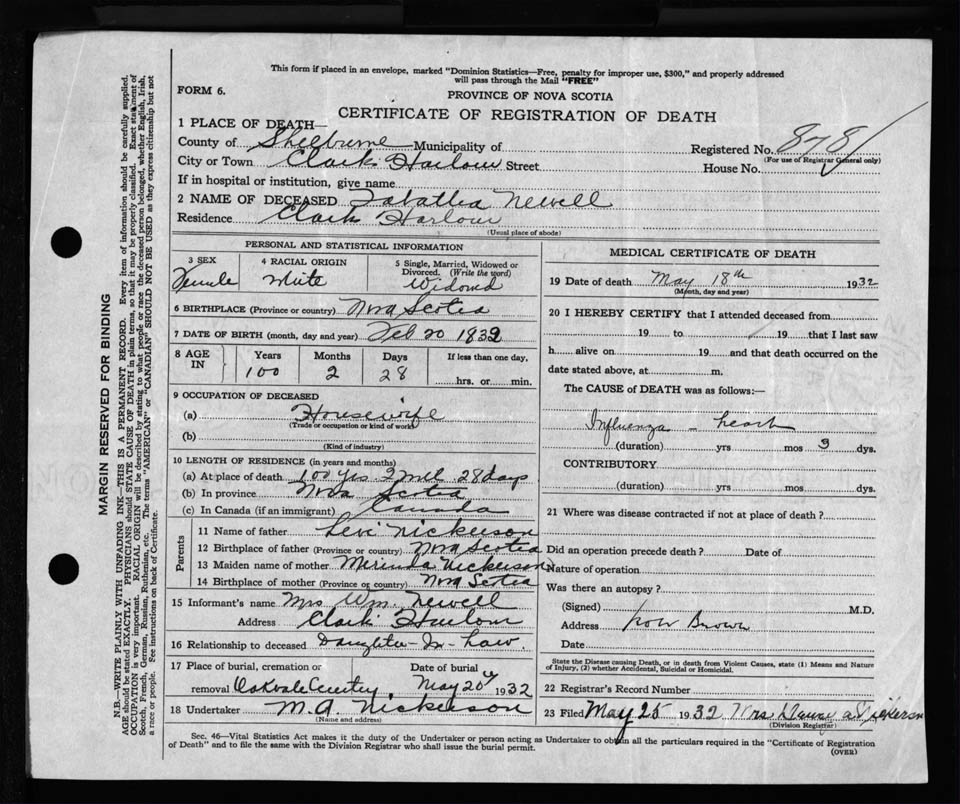 This form if placed in an envelope, marked "Dominion Statistics—Free, penalty for improper use, $300," and properly addressed
will pass through the Mail "FREE"
FORM 6.
PROVINCE OF NOVA SCOTIA
CERTIFICATE OF REGISTRATION OF DEATH
1 PLACE OF DEATH—
County of Shelburne Municipality of Registered No. 8781
(For use of Registrar General only)
City or Town Clark's Harbour Street House No.
If in hospital or institution, give name
2 NAME OF DECEASED Tabatha Newell
Residence Clark's Harbour
(Usual place of abode)
PERSONAL AND STATISTICAL INFORMATION
3 SEX
Female
4 RACIAL ORIGIN
White
5 Single, Married, Widowed or
Divorced. (Write the word)
Widowd
6 BIRTHPLACE (Province or country) Nova Scotia
7 DATE OF BIRTH (month, day and year) Feb 20 1832
8 AGE IN
Years Months Days If less than one day,
100 2 28 hrs. or min.
9 OCCUPATION OF DECEASED
(a) Housewife
(Trade or occupation or kind of work)
(b)
(Kind of industry)
10 LENGTH OF RESIDENCE (in years and months)
(a) At place of death 100 yrs 2 mth 28 days
(b) In province Nova Scotia
(c) In Canada (if an immigrant) Canada
Parents
11 Name of father Levi Nickerson
12 Birthplace of father (Province or country) Nova Scotia
13 Maiden name of mother Nickerson
14 Birthplace of mother (Province or country) Nova Scotia
15 Informant's name Mrs Wm Newell
Address Clark's Harbour
16 Relationship to deceased Daughter-In-Law.
17 Place of burial, cremation or Date of burial
removal Oakvale Cemetery, May 20 1932
18 Undertaker M. A. Nickerson
(Name and address)
MEDICAL CERTIFICATE OF DEATH
19 Date of death May 18th 1932
(Month, day and year)
20 I HEREBY CERTIFY that I attended deceased from
19 to 19 that I last saw
h alive on 19 and that death occurred on the
date stated above, at m.
The CAUSE of DEATH was as follows:—
Influenza - heart
(duration) yrs mos 3 dys.
CONTRIBUTORY
(duration) yrs mos dys.
21 Where was disease contracted if not at place of death?
Did an operation precede death? Date of
Nature of operation
Was there an autopsy?
(Signed) M.D.
Address Brown
Date
State the Disease causing Death, or in death from Violent Causes, state (1) Means and Nature
of Injury, (2) whether Accidental, Suicidal or Homicidal.
22 Registrar's Record Number
23 Filed May 25 1932 Mrs
(Division Registrar)
Sec. 46—Vital Statistics Act makes it the duty of the Undertaker or person acting as Undertaker to obtain all the particulars required in the "Certificate of Registration
of Death" and to file the same with the Division Registrar who shall issue the burial permit. (OVER)
MARGIN RESERVED FOR BINDING
N.B.—WRITE PLAINLY WITH UNFADING INK—THIS IS A PERMANENT RECORD. Every item of information should be carefully supplied.
AGE should be stated EXACTLY. PHYSICIANS should STATE CAUSE OF DEATH in plain terms, so that it may be properly classified. Exact statement of
OCCUPATION is very important. RACIAL ORIGIN will be described by stating to what people or race the deceased person belonged, whether English, Irish,
Scotch, French, German, Russian, Ruthenian, etc. The terms "AMERICAN" or "CANADIAN" SHOULD NOT BE USED as they express citizenship but not
a race or people. See instructions on back of Certificate.